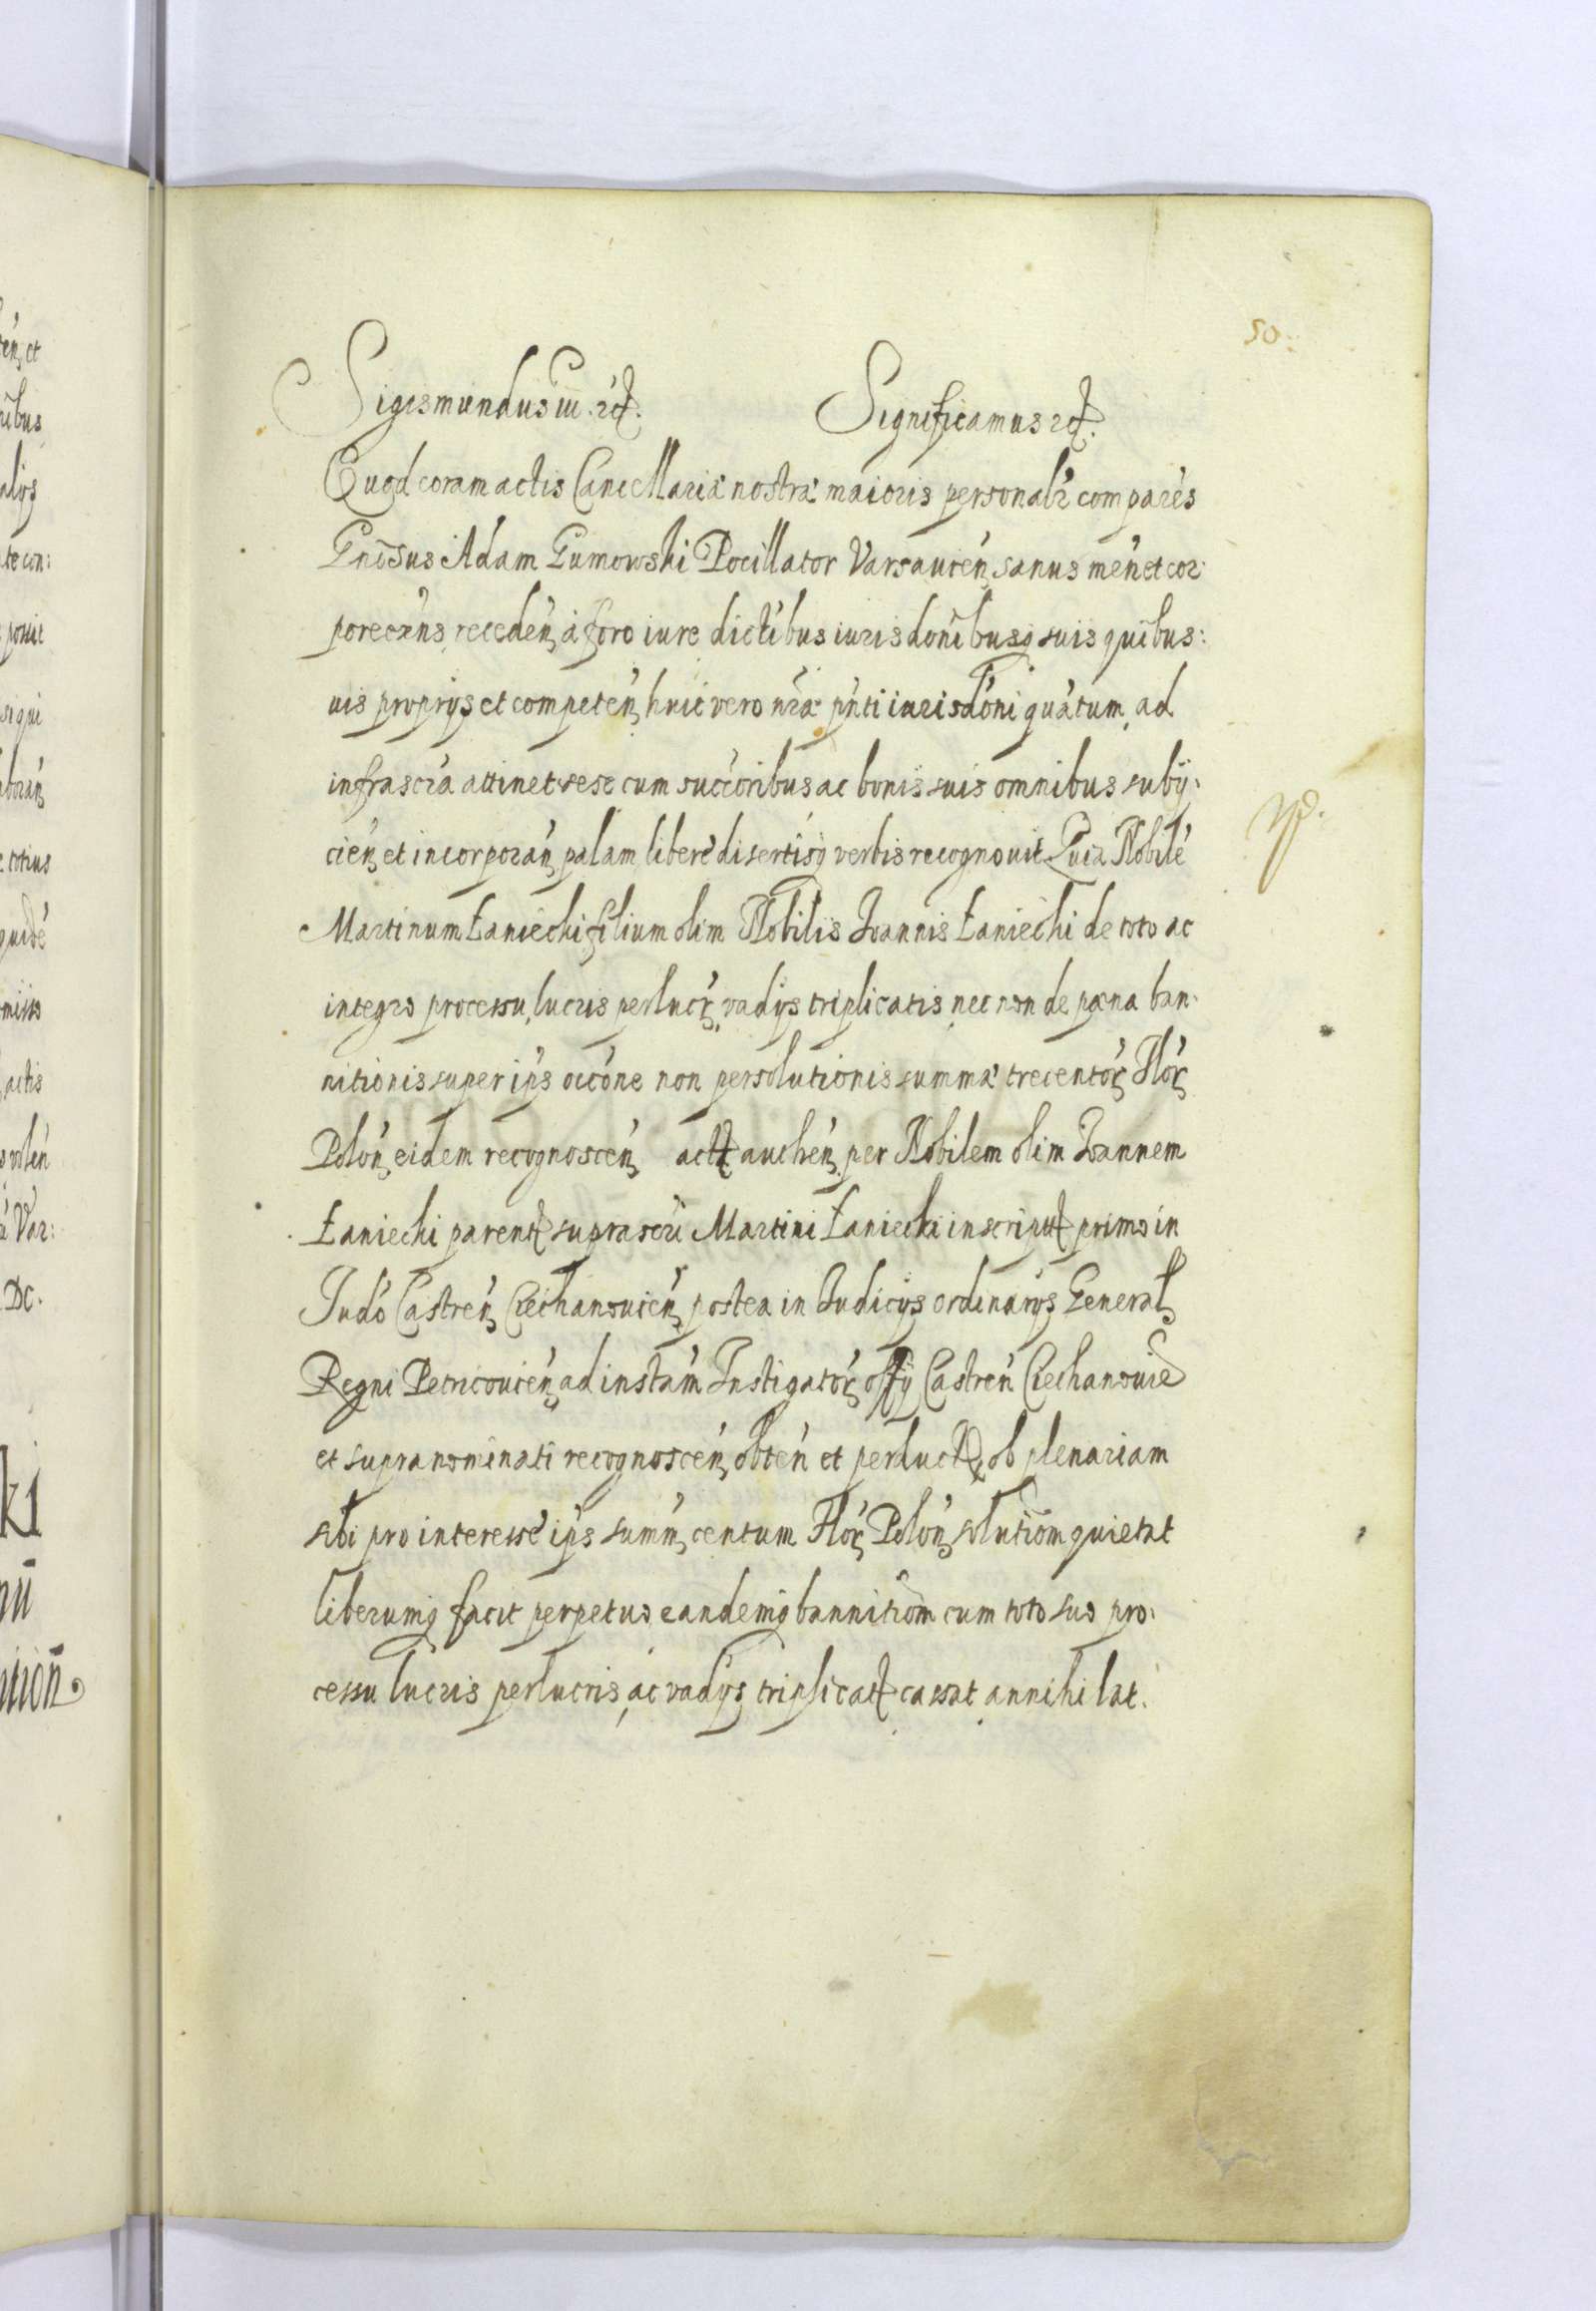 50.
Sigismundus III. etc. Significamus etc.
Quod coram actis Cancellariæ nostræ maioris personalr comparẽs
Gnosus Adam Gumowski Pocillator Varsauien, sanus men et cor:
pore exn̄s, receden, à foro iure dictibus iurisdonibusq suis quibus:
uis proprijs et competen, huic vero nræ pn̄ti iurisdoni quatum, ad
infrascra attinet sese cum succoribus ac bonis suis omnibus subij:
cien, et incorporan, palam libere disertisq verbis recognouit Quia Nobile
Martinum Łaniecki filium olim Nobilis Ioannis Łaniecki de toto ac
integro processu, lucris perlucr, vadijs triplicatis, nec non de pæna ban:
nitionis super ips occone non persolutionis summæ trecentor, Flor,
Polon, eidem recognoscen, act authen, per Nobilem olim Ioannem
Łaniecki parent suprascri Martini Łaniecki inscript primo in
Iudo Castren, Ciechanouien, postea in Iudicijs ordinarijs General,
Regni Petricouien, ad instam Instigator, offij Castren Ciechanouie
et supranominati recognoscen, obten et perluct, ob plenariam
sibi pro interesse ips summ, centum Flor, Polon, solutiom quietat
liberumq facit perpetuo eandemq bannitiom cum toto suo pro:
cessu lucris perlucris, ac vadijs triplicat cassat annihilat.